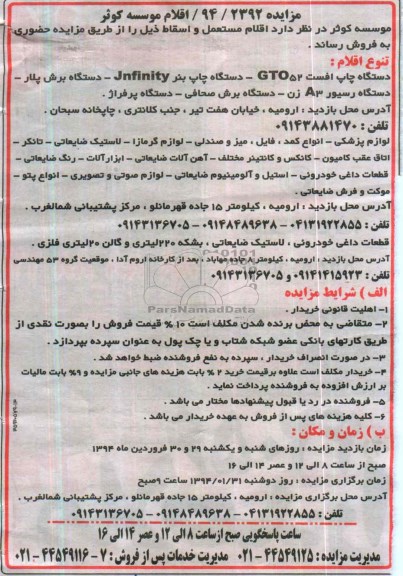 مزایده ۲۳۹۲ / ۹۴ / اقلام موسسه کوثر
موسسه کوثر در نظر دارد اقلام مستعمل و اسقاط ذیل را از طریق مزایده حضوری
به فروش رساند .
تنوع اقلام :
دستگاه چاپ افست GTO۵۲ - دستگاه چاپ بنر Jnfinity - دستگاه برش پلار -
دستگاه رسیور A۳ زن - دستگاه برش صحافی - دستگاه پرفراژ .
آدرس محل بازدید : ارومیه ، خیابان هفت تیر ، جنب کلانتری ، چاپخانه سبحان .
تلفن : ۰۹۱۴۳۸۸۱۴۷۰
لوازم پزشکی - انواع کمد ، فایل ، میز و صندلی - لوازم گرمازا - لاستیک ضایعاتی - تانکر -
اتاق عقب کامیون - کانکس و کانتینر مختلف - آهن آلات ضایعاتی - ابزارآلات - رنگ ضایعاتی -
قطعات داغی خودرونی - استیل و آلومینیوم ضایعاتی - لوازم صوتی و تصویری - انواع پتو -
موکت و فرش ضایعاتی .
آدرس محل بازدید : ارومیه ، کیلومتر ۱۵ جاده قهرمانلو ، مرکز پشتیبانی شمالغرب .
تلفن : ۰۴۱۳۱۹۲۲۸۵۵ - ۰۹۱۴۸۴۸۹۶۳۸ - ۰۹۱۴۳۱۳۶۷۰۵
قطعات داغی خودرونی ، لاستیک ضایعاتی ، بشکه ۲۲۰لیتری و گالن ۲۰لیتری فلزی .
آدرس محل بازدید : ارومیه ، کیلومتر ۸ جاده مهاباد ، بعد از کارخانه اروم آدا ، موقعیت گروه ۵۳ مهندسی
تلفن : ۰۹۱۴۱۴۱۵۹۲۳ و ۰۹۱۴۳۱۳۶۷۰۵
الف ) شرایط مزایده
۱- اهلیت قانونی خریدار .
۲- متقاضی به محض برنده شدن مکلف است ۱۰ % قیمت فروش را بصورت نقدی از
طریق کارتهای بانکی عضو شبکه شتاب و یا چک پول به عنوان سپرده بپردازد .
۳- در صورت انصراف خریدار ، سپرده به نفع فروشنده ضبط خواهد شد .
۴- خریدار مکلف است علاوه برقیمت خرید ۲ % بابت هزینه های جانبی مزایده و ۹% بابت مالیات
بر ارزش افزوده به فروشنده پرداخت نماید .
۵- فروشنده در رد یا قبول پیشنهادها مختار می باشد .
۶- کلیه هزینه های پس از فروش به عهده خریدار می باشد .
ب ) زمان و مکان :
زمان بازدید مزایده : روزهای شنبه و یکشنبه ۲۹ و ۳۰ فروردین ماه ۱۳۹۴
صبح از ساعت ۸ الی ۱۲ و عصر ۱۴ الی ۱۶
زمان برگزاری مزایده : روز دوشنبه ۱۳۹۴/۰۱/۳۱ ساعت ۹صبح
آدرس محل برگزاری مزایده : ارومیه ، کیلومتر ۱۵ جاده قهرمانلو ، مرکز پشتیبانی شمالغرب .
تلفن : ۰۴۱۳۱۹۲۲۸۵۵ - ۰۹۱۴۸۴۸۹۶۳۸ - ۰۹۱۴۳۱۳۶۷۰۵
ساعت پاسخگویی صبح ازساعت ۸ الی ۱۲ و عصر ۱۴ الی ۱۶
مدیریت مزایده : ۴۴۵۴۹۱۲۵ - ۰۲۱ مدیریت خدمات پس از فروش : ۷ - ۴۴۵۴۹۱۱۶ - ۰۲۱
ParsNamadData